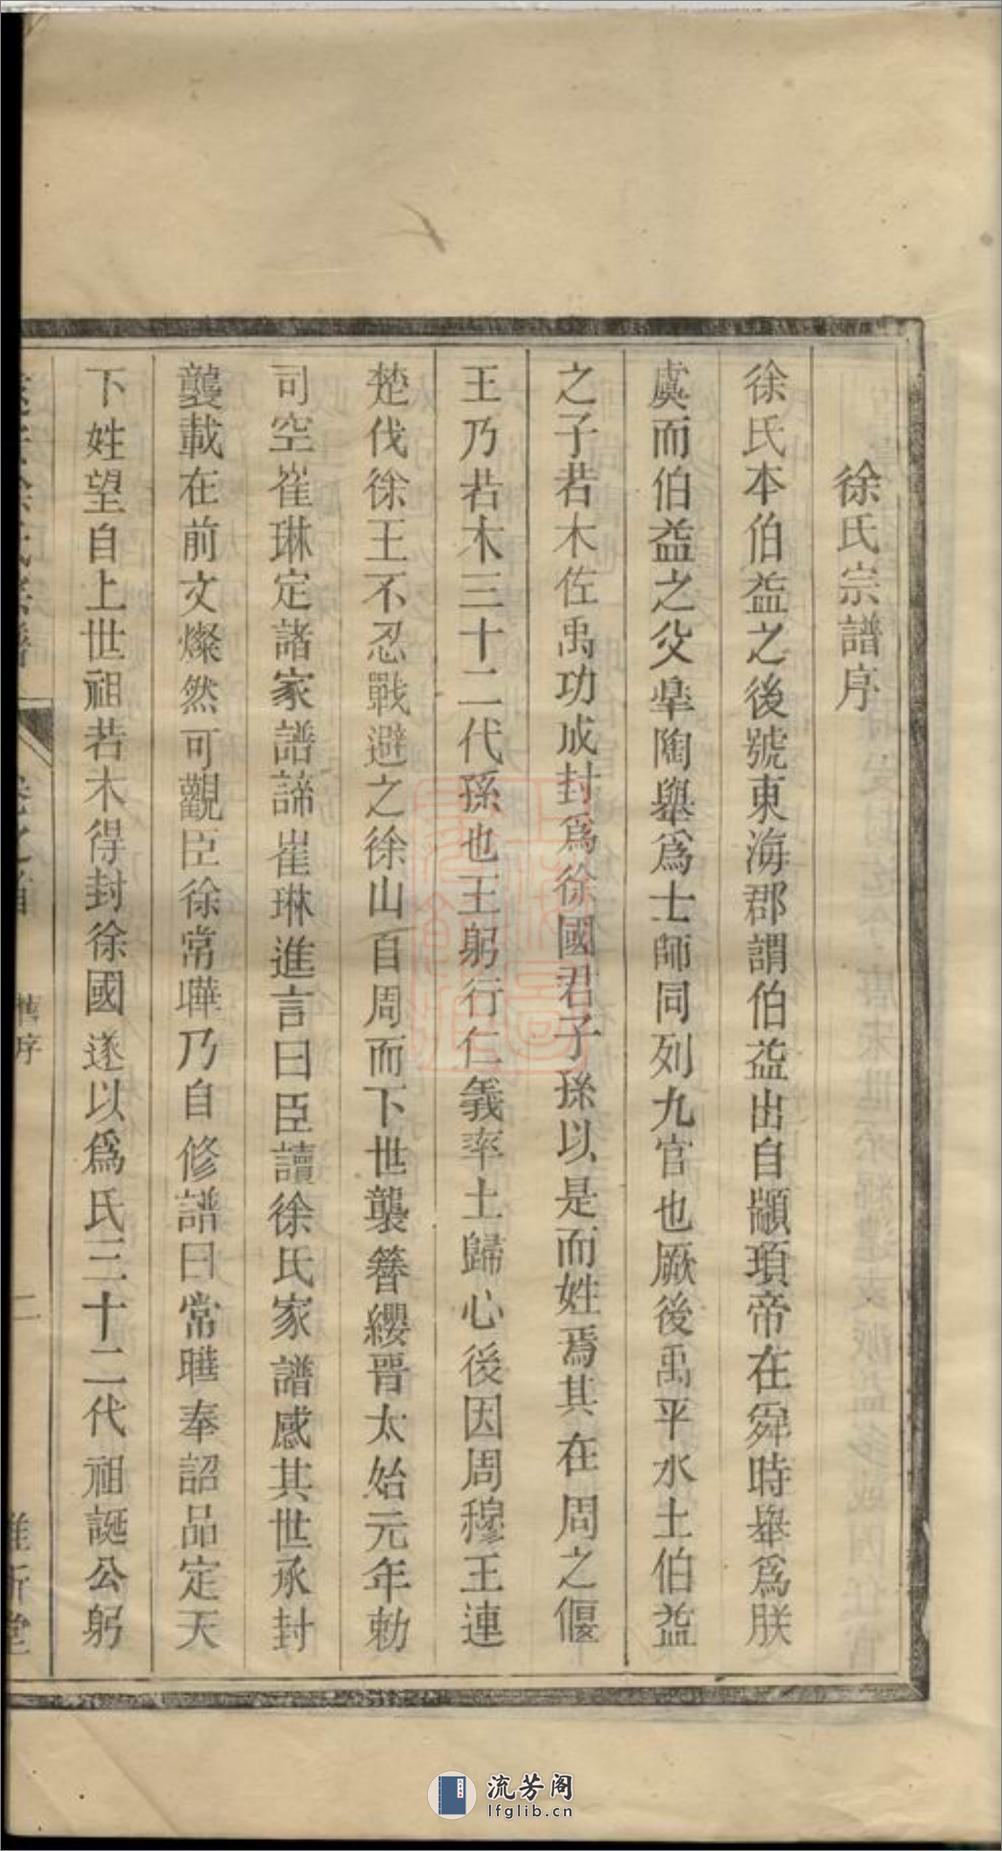 徐氏宗譜序
徐氏本伯益之後號東海郡謂伯益出自顓頊帝在舜時舉爲朕
虞而伯益之父臯陶舉爲士師同列九官也厥後禹平水土伯益
之子若木佐禹功成封爲徐國君子孫以是而姓焉其在周之偃
王乃若木三十二代孫也王躬行仁義率土歸心後因周穆王連
楚伐徐王不忍戰避之徐山自周而下世襲簪纓晋太始元年勅
司空崔琳定諸家譜諦崔琳進言曰臣讀徐氏家譜感其世承封
襲載在前文燦然可觀臣徐常曄乃自修譜曰常曄奉詔品定天
下姓望自上世祖若木得封徐國遂以爲氏三十二代祖誕公躬
氏宗譜 卷之首 舊序 二 維新堂
流芳阁
lfglib.cn